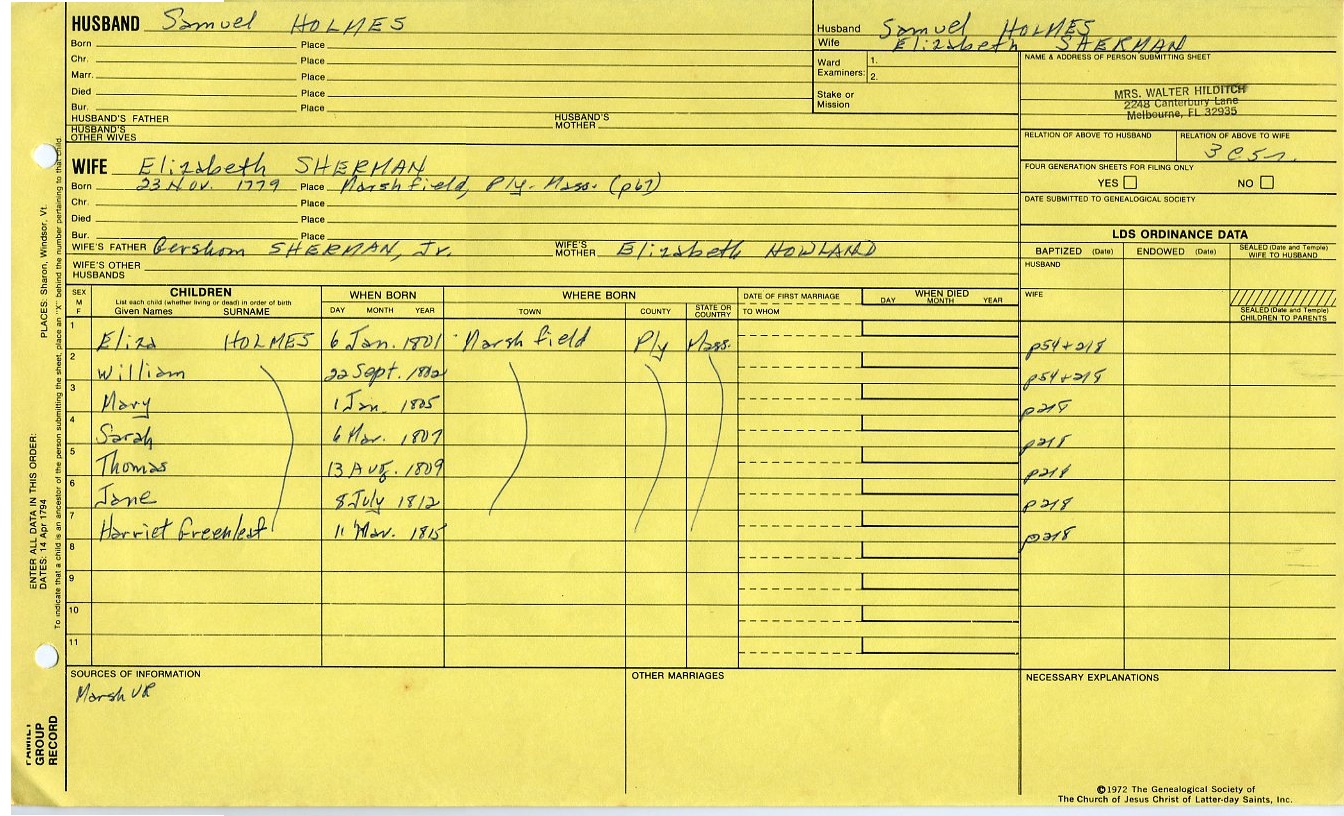 HUSBAND Samuel HOLMES
Born Place
Chr. Place
Marr. Place
Died Place
Bur. Place
HUSBAND'S FATHER HUSBAND'S MOTHER
HUSBAND'S OTHER WIVES
Husband Samuel HOLMES
Wife Elizabeth SHERMAN
Ward Examiners: 1.
2.
Stake or Mission
NAME & ADDRESS OF PERSON SUBMITTING SHEET
MRS. WALTER HILDITCH
2248 Canterbury Lane
Melbourne, FL 32935
RELATION OF ABOVE TO HUSBAND RELATION OF ABOVE TO WIFE
FOUR GENERATION SHEETS FOR FILING ONLY
YES NO
DATE SUBMITTED TO GENEALOGICAL SOCIETY
WIFE Elizabeth SHERMAN
Born 23 Nov. 1779 Place Marshfield, Ply. Mass. (p67)
Chr. Place
Died Place
Bur. Place
WIFE'S FATHER Gershom SHERMAN, Jr. WIFE'S MOTHER Elizabeth HOWLAND
WIFE'S OTHER HUSBANDS
LDS ORDINANCE DATA
BAPTIZED (Date) ENDOWED (Date) SEALED (Date and Temple) WIFE TO HUSBAND
HUSBAND
WIFE
SEALED (Date and Temple) CHILDREN TO PARENTS
SEX M F CHILDREN WHEN BORN WHERE BORN DATE OF FIRST MARRIAGE WHEN DIED
List each child (whether living or dead) in order of birth
Given Names SURNAME DAY MONTH YEAR TOWN COUNTY STATE OR COUNTRY TO WHOM DAY MONTH YEAR
1 Eliza HOLMES 6 Jan. 1801 Marshfield Ply Mass. p54+218
2 William 22 Sept. 1802 p54+218
3 Mary 1 Jan. 1805 p218
4 Sarah 6 Mar. 1807 p218
5 Thomas 13 Aug. 1809 p218
6 Jane 8 July 1812 p218
7 Harriet Greenleaf 11 Mar. 1815 p218
8
9
10
11
SOURCES OF INFORMATION
Marsh VR
OTHER MARRIAGES
NECESSARY EXPLANATIONS
©1972 The Genealogical Society of
The Church of Jesus Christ of Latter-day Saints, Inc.
ENTER ALL DATA IN THIS ORDER:
DATES: 14 Apr 1794 PLACES: Sharon, Windsor, Vt.
To indicate that a child is an ancestor of the person submitting the sheet, place an "X" behind the number pertaining to that child.
FAMILY GROUP RECORD